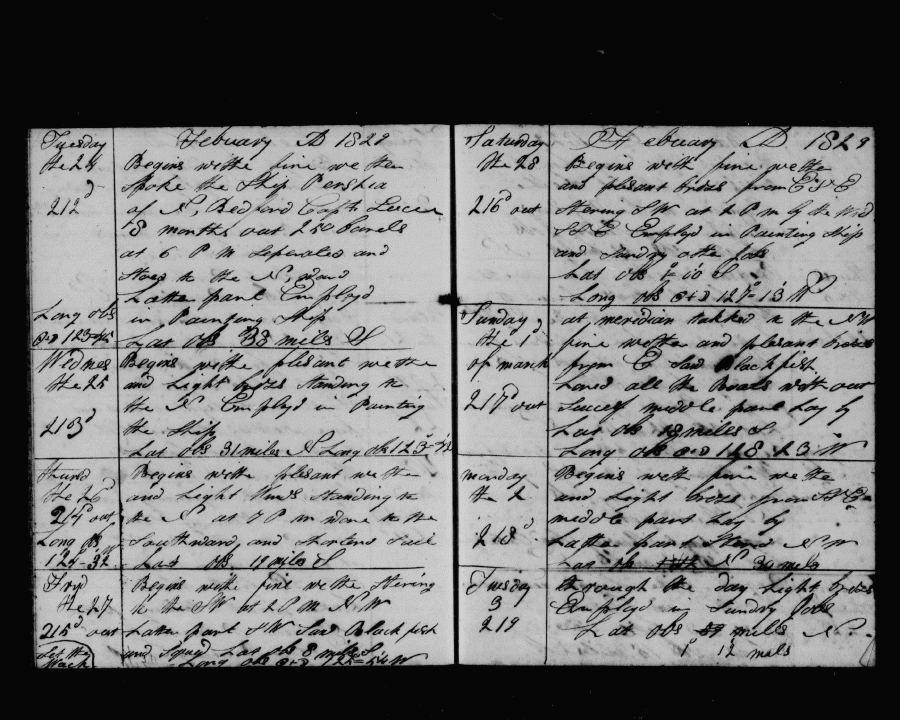 Febuary AD 1829
Tuesday
the 24
212d
Begins withe fine wether
Spoke the Ship Pershia
of N. Bedford Capth
8 months out 250 barels
at 6 P M Seperated and
to the N. ward
Lathe part Employd
in Painting Ship
Lat obs 33 miles S
Long obs
123-45
Wednes
the 25
213d
Begins withe plesant wethe
and Light brezes Standing to
the N Employd in Painting
the Ship
Lat obs 31 miles N Long obs 123
the 26
214d out
Long obs
124-32 W
Begins withe plesant wethe
and Light Standing to
the N at 7 P m wore to the
Southward and Shortend Sail
Lat obs 19 miles S
Fryd
the 27
215d out
Begins withe fine wethe Stering
to the SW at 2 P M N.W
Lathe part SW Saw Black fish
and Lat obs 8 miles S.
Long obs 125-54 W
Febuary AD 1829
Saturday
the 28
216d out
Begins with fine wethe
and plesant brezes from
Stering SW at 2 P m by the wind
Employd in Painting Ship
and Sundry othe Jobs
Lat obs S
Long obs 127-13 W
Sunday
the 1d
of march
217d out
at meridian takked to the NW
fine wethe and plesant brezes
from E Saw Black fish
all the Boats with out
Sucses middle part Lay by
Lat obs 18 miles S
Long obs 128 23 W
monday
the 2
218d
Begins with fine wethe
and Light brezes from
middle part Lay by
Lathe part N W
Lat ob N 30 mils
Tuesday
3
219
through the day Light brezes
Employd in Sundry Jobs
Lat obs miles N.
12 mils